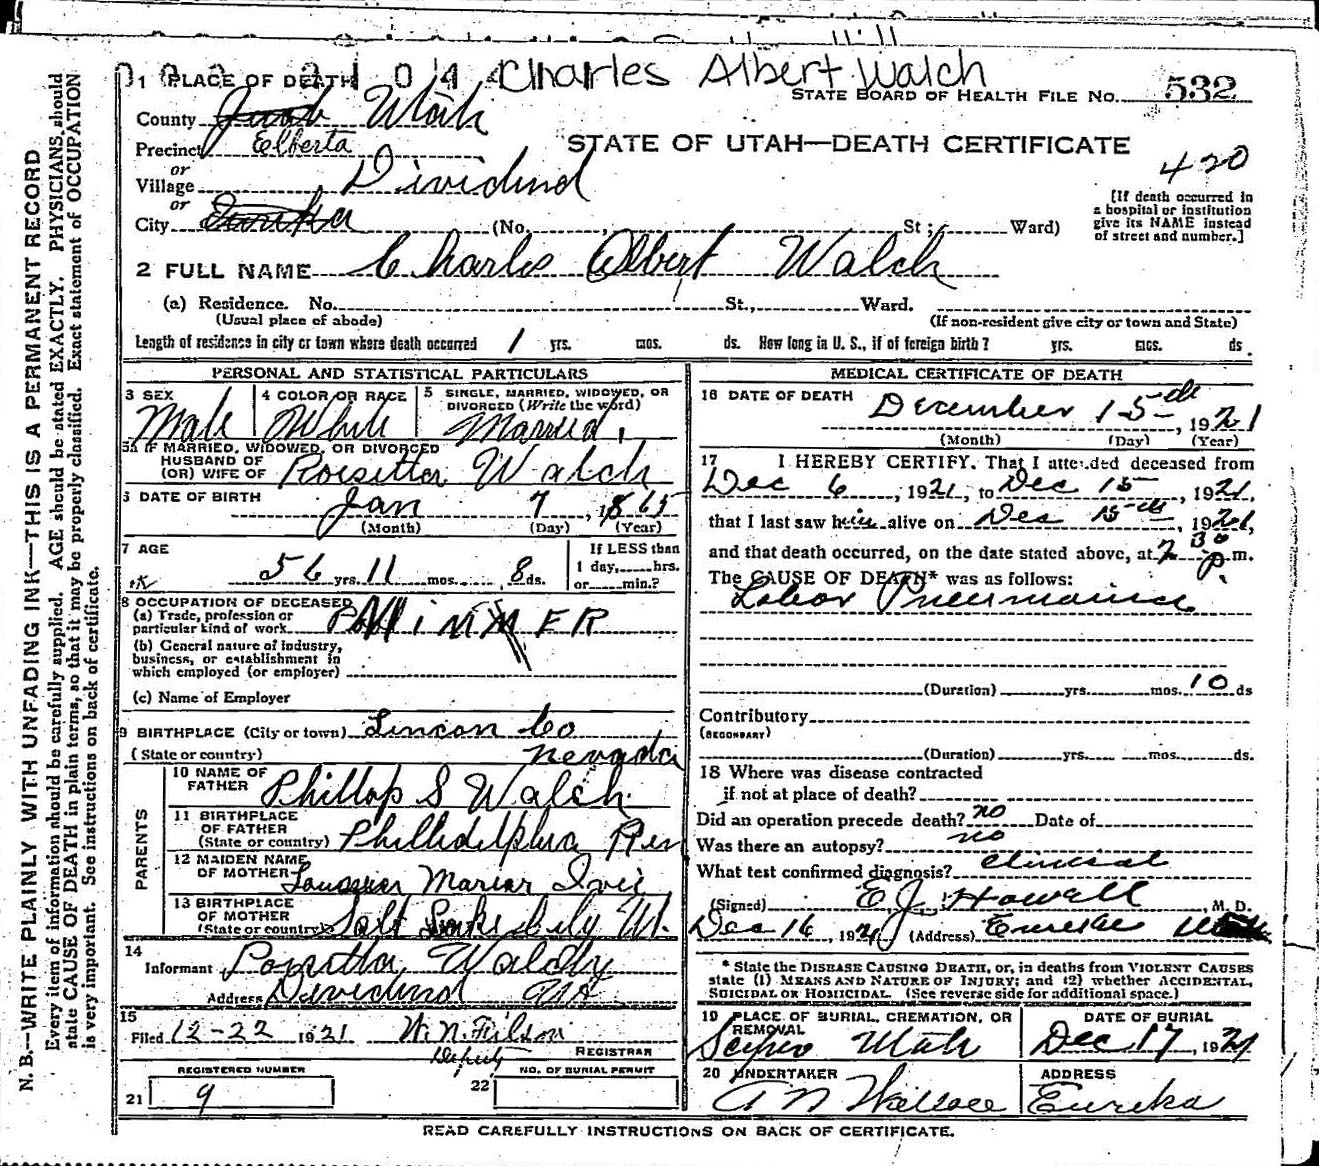 Charles Albert Walch
1 PLACE OF DEATH
STATE BOARD OF HEALTH FILE NO. 532
County Juab Utah
Precinct Elberta
STATE OF UTAH—DEATH CERTIFICATE
420
or
Village Dividend
or
City Eureka (No. St; Ward)
[If death occurred in
a hospital or institution
give its NAME instead
of street and number.]
2 FULL NAME Charles Albert Walch
(a) Residence. No. St., Ward.
(Usual place of abode) (If non-resident give city or town and State)
Length of residence in city or town where death occurred 1 yrs. mos. ds. How long in U. S., if of foreign birth? yrs. mos. ds.
PERSONAL AND STATISTICAL PARTICULARS
3 SEX
Male
4 COLOR OR RACE
White
5 SINGLE, MARRIED, WIDOWED, OR
DIVORCED (Write the word)
Married
5a IF MARRIED, WIDOWED, OR DIVORCED
HUSBAND OF
(OR) WIFE OF Rosetta Walch
6 DATE OF BIRTH
Jan 7, 1865
(Month) (Day) (Year)
7 AGE
56 yrs. 11 mos. 8 ds.
If LESS than
1 day, hrs.
or min.?
8 OCCUPATION OF DECEASED
(a) Trade, profession or
particular kind of work MINER
(b) General nature of industry,
business, or establishment in
which employed (or employer)
(c) Name of Employer
9 BIRTHPLACE (City or town) Lincon Co
(State or country) Nevada
PARENTS
10 NAME OF
FATHER Phillop S Walch
11 BIRTHPLACE
OF FATHER
(State or country) Philledelphia Pen
12 MAIDEN NAME
OF MOTHER Mariar Ivie
13 BIRTHPLACE
OF MOTHER
(State or country) Salt Lake City Ut.
14
Informant Rosetta Walch
Address Dividend Ut
15
Filed 12-22 1921 W. N. Filson
Deputy REGISTRAR
REGISTERED NUMBER
21 9
NO. OF BURIAL PERMIT
22
MEDICAL CERTIFICATE OF DEATH
16 DATE OF DEATH December 15th, 1921
(Month) (Day) (Year)
17 I HEREBY CERTIFY, That I attended deceased from
Dec 6, 1921, to Dec 15, 1921,
that I last saw him alive on Dec 15th, 1921,
and that death occurred, on the date stated above, at 7 30 p.m.
The CAUSE OF DEATH* was as follows:
Lobar Pneumonia
(Duration) yrs. mos. 10 ds
Contributory
(SECONDARY)
(Duration) yrs. mos. ds.
18 Where was disease contracted
if not at place of death?
Did an operation precede death? no Date of
Was there an autopsy? no
What test confirmed diagnosis? clinical
(Signed) E J Howell, M. D.
Dec 16, 1921 (Address) Eureka Utah
* State the DISEASE CAUSING DEATH, or, in deaths from VIOLENT CAUSES
state (1) MEANS AND NATURE OF INJURY; and (2) whether ACCIDENTAL,
SUICIDAL OR HOMICIDAL. (See reverse side for additional space.)
19 PLACE OF BURIAL, CREMATION, OR
REMOVAL
Scipio Utah
DATE OF BURIAL
Dec 17, 1921
20 UNDERTAKER
A N Wallace
ADDRESS
Eureka
READ CAREFULLY INSTRUCTIONS ON BACK OF CERTIFICATE.
N. B.—WRITE PLAINLY WITH UNFADING INK—THIS IS A PERMANENT RECORD
Every item of information should be carefully supplied. AGE should be stated EXACTLY. PHYSICIANS should
state CAUSE OF DEATH in plain terms, so that it may be properly classified. Exact statement of OCCUPATION
is very important. See instructions on back of certificate.